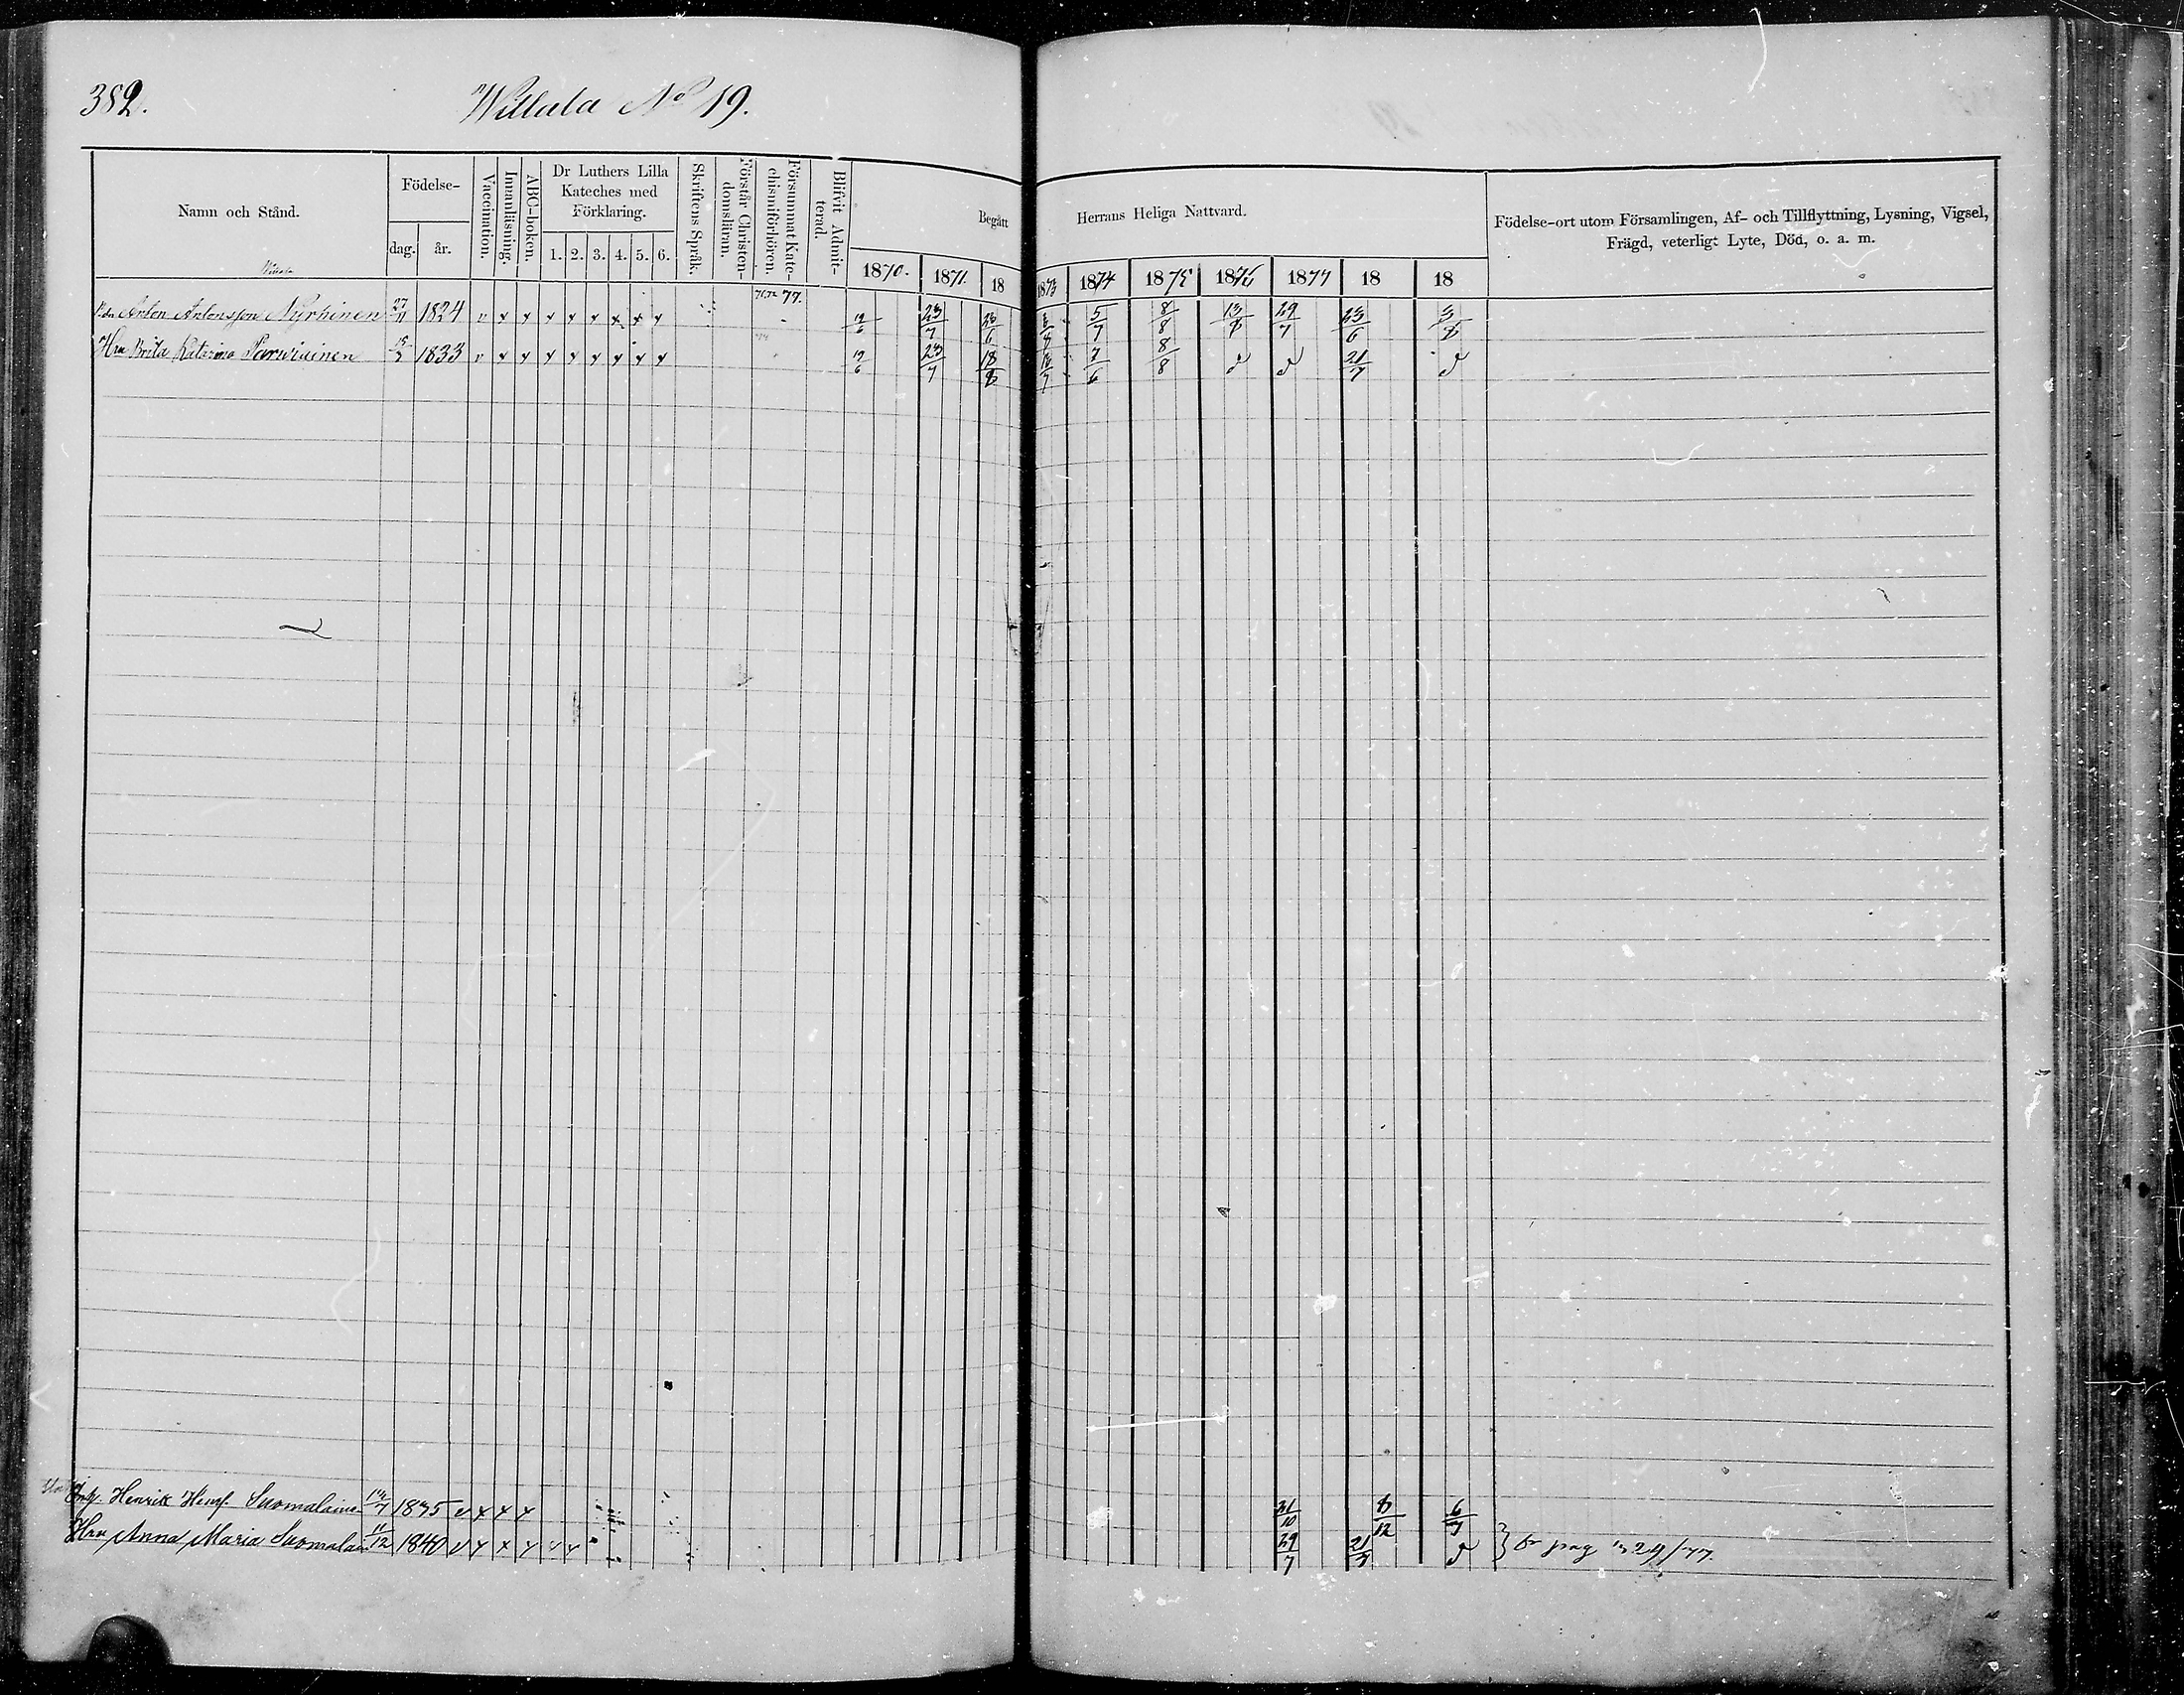 382.
Willala No 19.
Namn och Stånd.
Födelse-
dag.
år.
Vaccination.
Innanläsning.
ABC-boken.
Dr Luthers Lilla
Kateches med
Förklaring.
1. 2. 3. 4. 5. 6.
Skriftens Språk.
Förstår Christen-
domsläran.
Försummat Kate-
chismiförhören.
Blifvit Admit-
terad.
Begått
Herrans Heliga Nattvard.
1870. 1871. 18 1873 1874 1875 1876 1877 18 18
Födelse-ort utom Församlingen, Af- och Tillflyttning, Lysning, Vigsel,
Frägd, veterligt Lyte, Död, o. a. m.
Anton Antonsson Nyrhinen 27/11 1824 v x x x x x x x x 77. 12/6 23/7 23/6 5/7 8/8 13/8 29/7 23/6 3/8
Hu Brita Katarina Parwiainen 1833 v x x x x x x x x 12/6 23/7 18/8 7/6 8/8 21/7
Henrik Henr. Suomalainen 1835 v x x x 31/10 8/12 6/7
Hu Anna Maria Suomalain 11/12 1840 v x x x x x 29/7 21/7